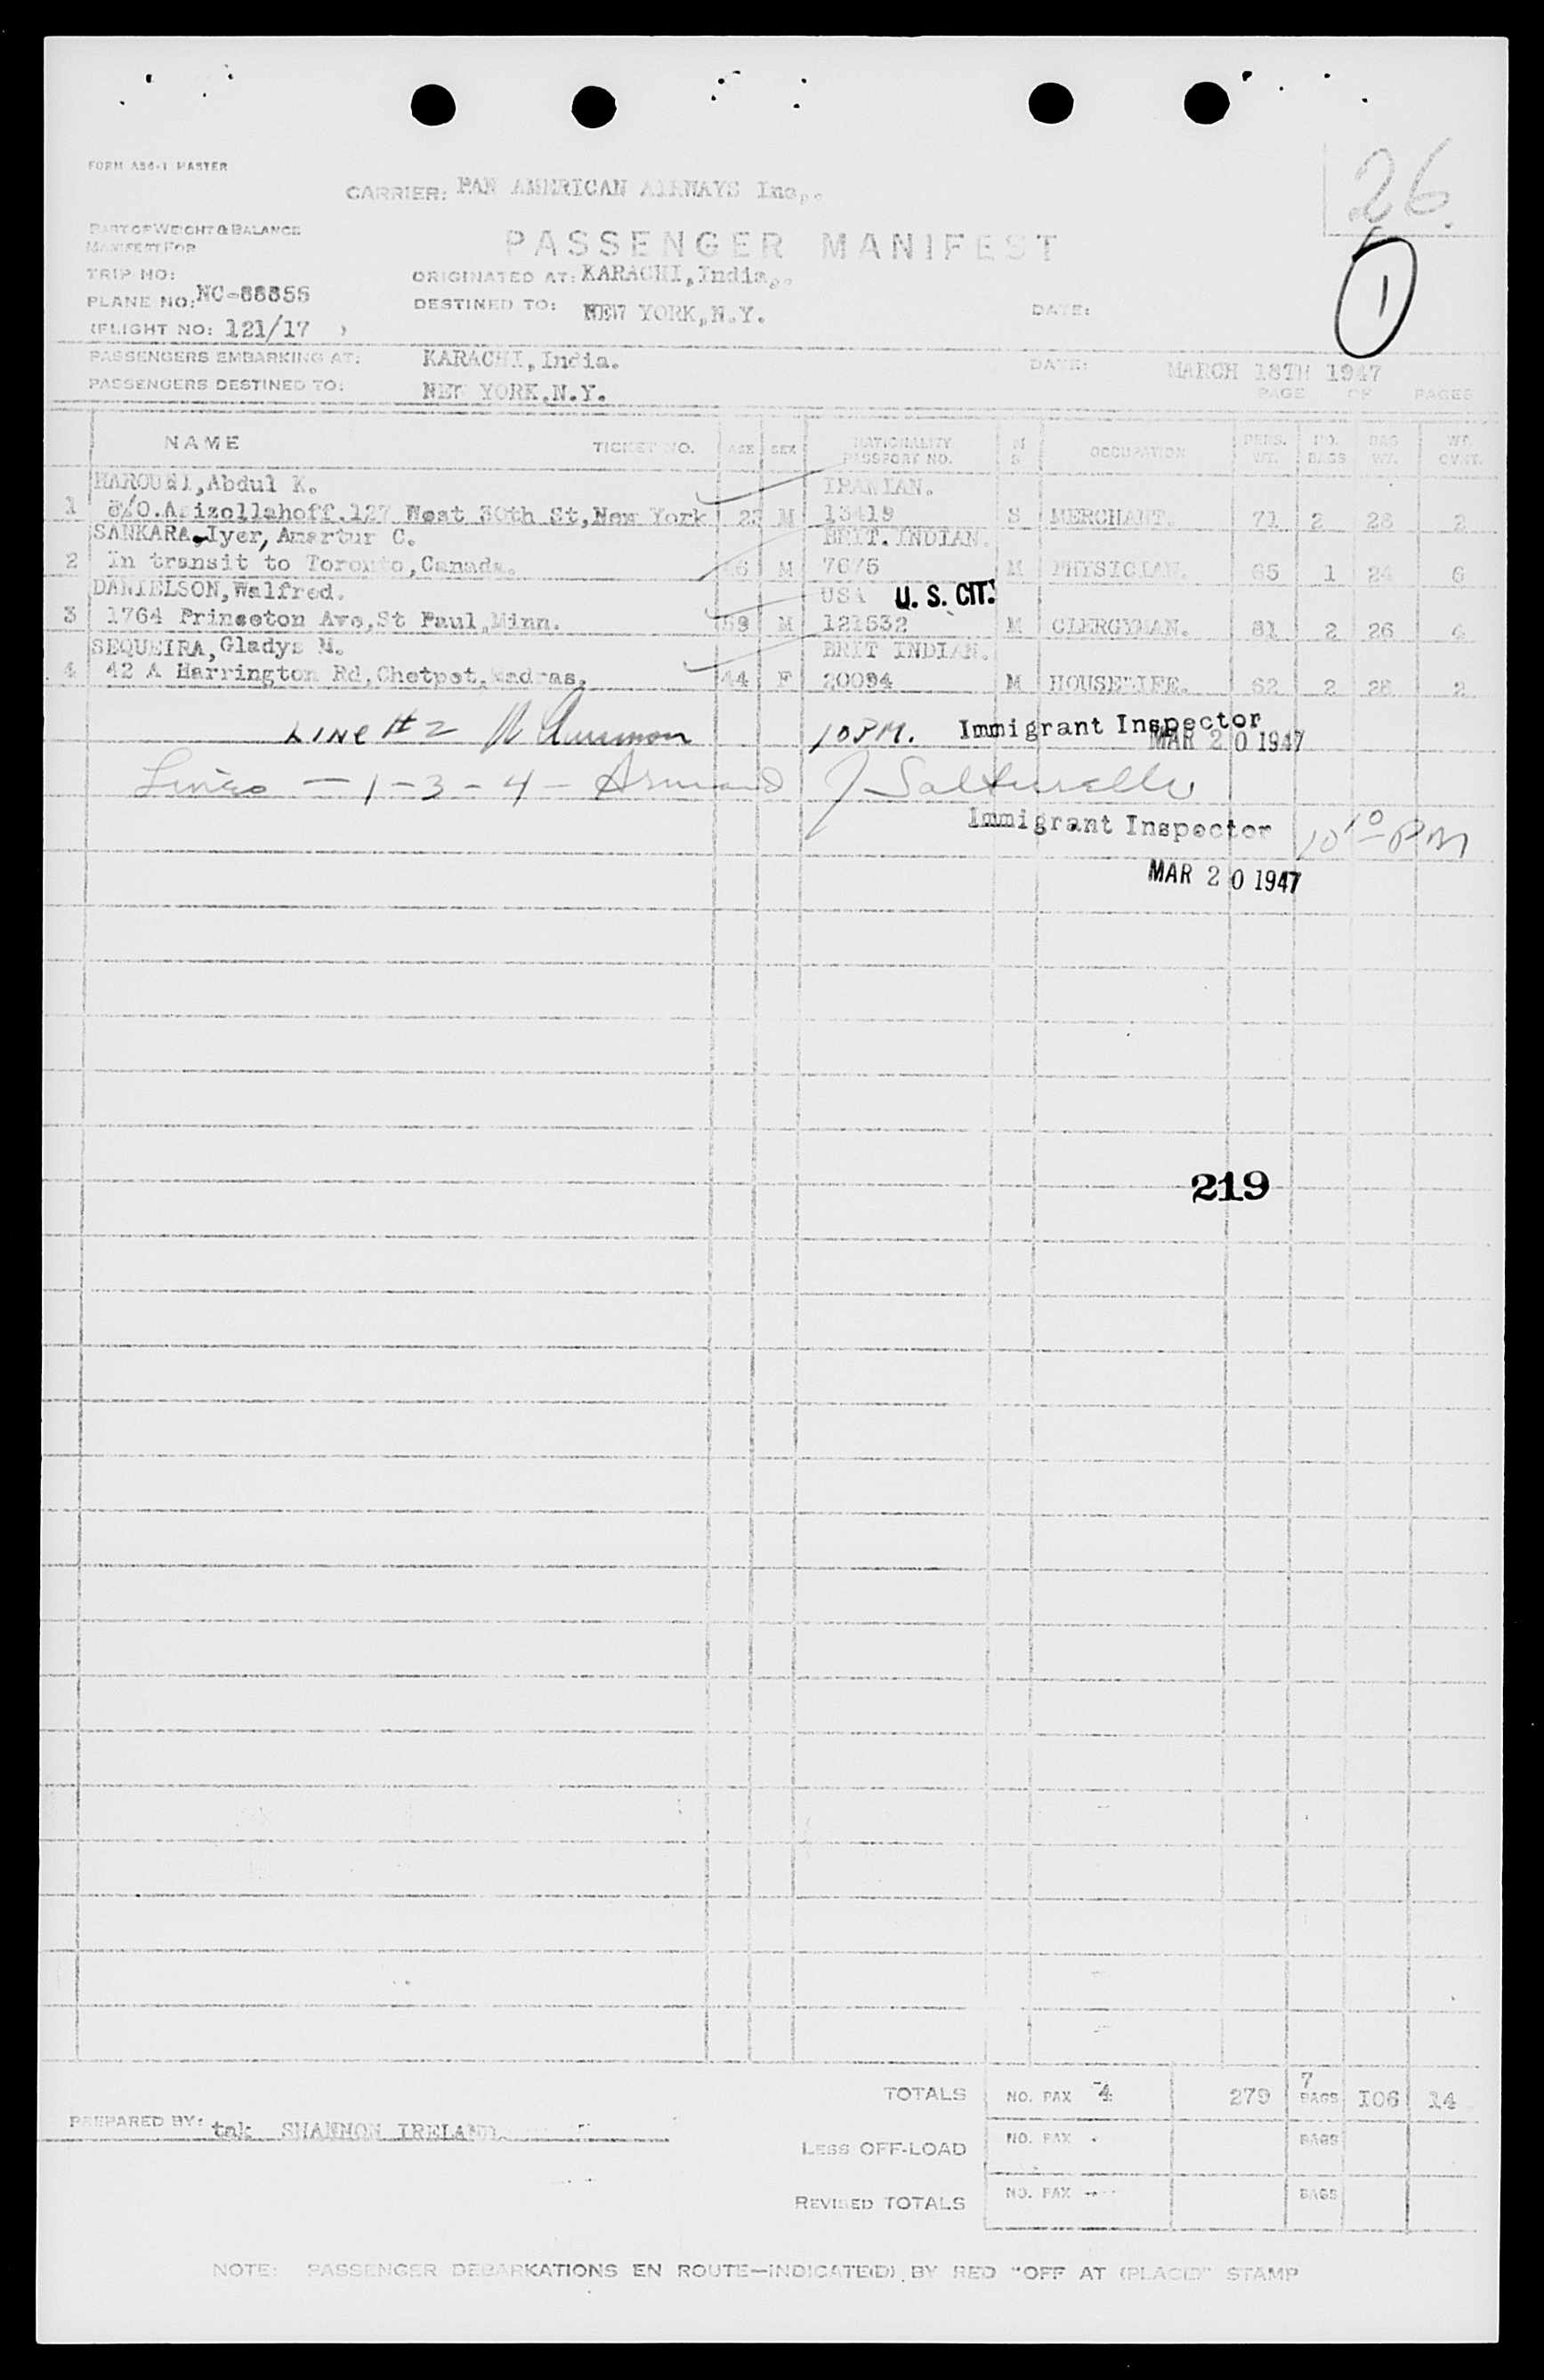 FORM AS6-1 MASTER
26
CARRIER: PAN AMERICAN AIRWAYS Inc,.
PART OF WEIGHT & BALANCE
MANIFEST FOR
PASSENGER MANIFEST
1
TRIP NO:
ORIGINATED AT: KARACHI, India,.
PLANE NO:
DESTINED TO: NEW YORK, N.Y.
DATE:
(FLIGHT NO: 121/17 )
PASSENGERS EMBARKING AT: KARACHI, India. DATE: MARCH 18TH 1947
PASSENGERS DESTINED TO: NEW YORK, N.Y. PAGE OF PAGES
NAME TICKET NO. AGE SEX NATIONALITY PASSPORT NO. M S OCCUPATION PERS. WT. NO. BAGS BAG WT. WT. OVWT.
Abdul K. IRANIAN.
1 127 West 30th St, New York M 13419 S MERCHANT. 71 2 28 2
SANKARA, Iyer, C. BRIT. INDIAN.
2 In transit to Toronto, Canada. M M PHYSICIAN. 65 1 24 6
DANIELSON, Walfred. USA U. S. CIT.
3 1764 Princeton Ave, St Paul, Minn. 59 M 121532 M CLERGYMAN. 81 2 26 4
SEQUEIRA, Gladys M. BRIT INDIAN.
4 42 A Harrington Rd, Chetpet, Madras. 44 F 20094 M HOUSEWIFE. 62 2 28 2
LINE # 2 10 P.M. Immigrant Inspector
MAR 20 1947
Lines - 1 - 3 - 4 - Armand J
Immigrant Inspector 10 10 PM
MAR 20 1947
219
TOTALS NO. PAX 4 279 7 BAGS 106 14
PREPARED BY: tak SHANNON IRELAND.
LESS OFF-LOAD NO. PAX BAGS
REVISED TOTALS NO. PAX BAGS
NOTE: PASSENGER DEBARKATIONS EN ROUTE—INDICATE(D) BY RED "OFF AT (PLACE)" STAMP